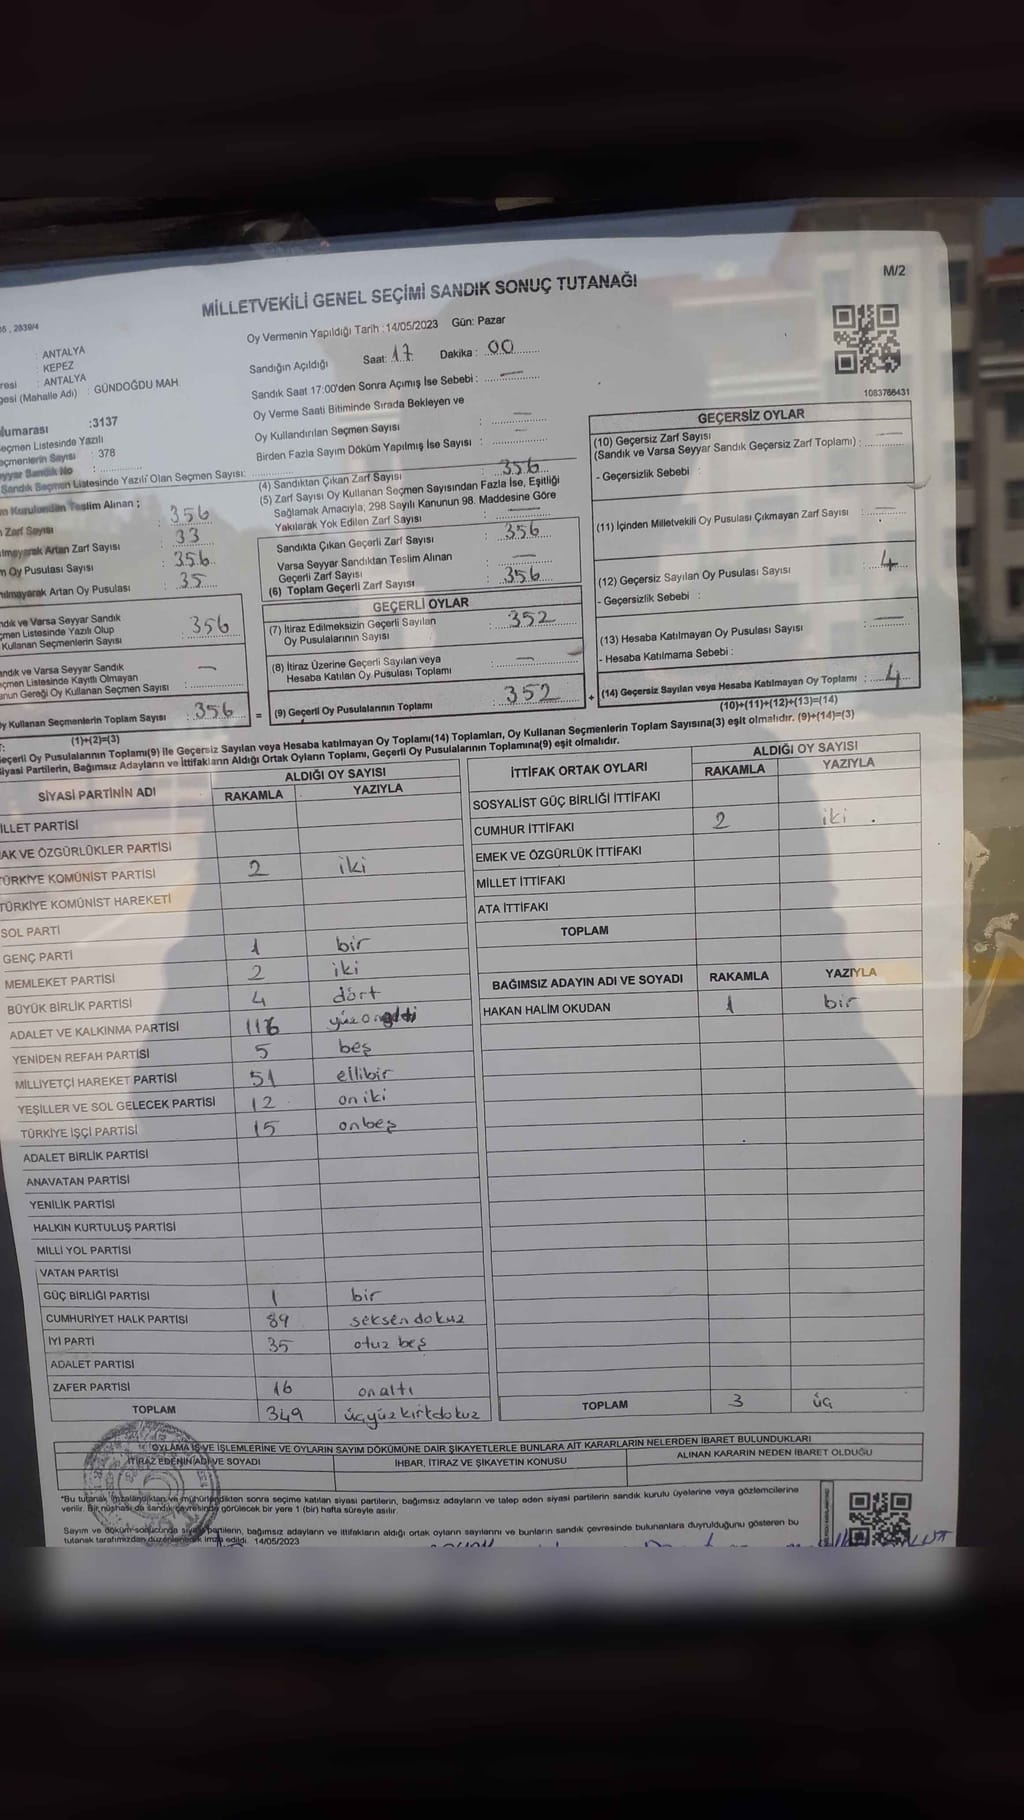 MİLLETVEKİLİ GENEL SEÇİMİ SANDIK SONUÇ TUTANAĞI
M/2
Oy Vermenin Yapıldığı Tarih :14/05/2023 Gün: Pazar
: ANTALYA
: KEPEZ
: ANTALYA
(Mahalle Adı) : GÜNDOĞDU MAH.
:3137
Listesinde Yazılı
Sayısı : 378
Sandık Seçmen Listesinde Yazılı Olan Seçmen Sayısı:
Sandığın Açıldığı Saat: 17 Dakika : 00
Sandık Saat 17:00'den Sonra Açımış İse Sebebi :
Oy Verme Saati Bitiminde Sırada Bekleyen ve
Oy Kullandırılan Seçmen Sayısı :
Birden Fazla Sayım Döküm Yapılmış İse Sayısı :
1083766431
Teslim Alınan ;
Zarf Sayısı : 356
Artan Zarf Sayısı : 33
Oy Pusulası Sayısı : 356
Artan Oy Pusulası : 35
ve Varsa Seyyar Sandık
Listesinde Yazılı Olup
Kullanan Seçmenlerin Sayısı 356
ve Varsa Seyyar Sandık
Listesinde Kayıtlı Olmayan
Gereği Oy Kullanan Seçmen Sayısı :
Kullanan Seçmenlerin Toplam Sayısı : 356
(1)+(2)=(3)
(4) Sandıktan Çıkan Zarf Sayısı : 356
(5) Zarf Sayısı Oy Kullanan Seçmen Sayısından Fazla İse, Eşitliği
Sağlamak Amacıyla, 298 Sayılı Kanunun 98. Maddesine Göre
Yakılarak Yok Edilen Zarf Sayısı :
Sandıkta Çıkan Geçerli Zarf Sayısı : 356
Varsa Seyyar Sandıktan Teslim Alınan
Geçerli Zarf Sayısı :
(6) Toplam Geçerli Zarf Sayısı : 356
GEÇERLİ OYLAR
(7) İtiraz Edilmeksizin Geçerli Sayılan
Oy Pusulalarının Sayısı : 352
(8) İtiraz Üzerine Geçerli Sayılan veya
Hesaba Katılan Oy Pusulası Toplamı :
= (9) Geçerli Oy Pusulalarının Toplamı : 352
GEÇERSİZ OYLAR
(10) Geçersiz Zarf Sayısı
(Sandık ve Varsa Seyyar Sandık Geçersiz Zarf Toplamı) :
- Geçersizlik Sebebi :
(11) İçinden Milletvekili Oy Pusulası Çıkmayan Zarf Sayısı :
(12) Geçersiz Sayılan Oy Pusulası Sayısı : 4
- Geçersizlik Sebebi :
(13) Hesaba Katılmayan Oy Pusulası Sayısı :
- Hesaba Katılmama Sebebi :
+ (14) Geçersiz Sayılan veya Hesaba Katılmayan Oy Toplamı : 4
(10)+(11)+(12)+(13)=(14)
Geçerli Oy Pusulalarının Toplamı(9) ile Geçersiz Sayılan veya Hesaba katılmayan Oy Toplamı(14) Toplamları, Oy Kullanan Seçmenlerin Toplam Sayısına(3) eşit olmalıdır. (9)+(14)=(3)
Siyasi Partilerin, Bağımsız Adayların ve İttifakların Aldığı Ortak Oyların Toplamı, Geçerli Oy Pusulalarının Toplamına(9) eşit olmalıdır.
SİYASİ PARTİNİN ADI
ALDIĞI OY SAYISI
RAKAMLA YAZIYLA
PARTİSİ
VE ÖZGÜRLÜKLER PARTİSİ
TÜRKİYE KOMÜNİST PARTİSİ 2 iki
TÜRKİYE KOMÜNİST HAREKETİ
SOL PARTİ
GENÇ PARTİ 1 bir
MEMLEKET PARTİSİ 2 iki
BÜYÜK BİRLİK PARTİSİ 4 dört
ADALET VE KALKINMA PARTİSİ
YENİDEN REFAH PARTİSİ 5 beş
MİLLİYETÇİ HAREKET PARTİSİ 51 ellibir
YEŞİLLER VE SOL GELECEK PARTİSİ 12 oniki
TÜRKİYE İŞÇİ PARTİSİ 15 onbeş
ADALET BİRLİK PARTİSİ
ANAVATAN PARTİSİ
YENİLİK PARTİSİ
HALKIN KURTULUŞ PARTİSİ
MİLLİ YOL PARTİSİ
VATAN PARTİSİ
GÜÇ BİRLİĞİ PARTİSİ 1 bir
CUMHURİYET HALK PARTİSİ 89 seksendokuz
İYİ PARTİ 35 otuz beş
ADALET PARTİSİ
ZAFER PARTİSİ 16 onaltı
TOPLAM 349 üçyüzkırkdokuz
İTTİFAK ORTAK OYLARI
ALDIĞI OY SAYISI
RAKAMLA YAZIYLA
SOSYALİST GÜÇ BİRLİĞİ İTTİFAKI
CUMHUR İTTİFAKI 2 iki
EMEK VE ÖZGÜRLÜK İTTİFAKI
MİLLET İTTİFAKI
ATA İTTİFAKI
TOPLAM
BAĞIMSIZ ADAYIN ADI VE SOYADI RAKAMLA YAZIYLA
HAKAN HALİM OKUDAN 1 bir
TOPLAM 3 üç
OYLAMA İŞ VE İŞLEMLERİNE VE OYLARIN SAYIM DÖKÜMÜNE DAİR ŞİKAYETLERLE BUNLARA AİT KARARLARIN NELERDEN İBARET BULUNDUKLARI
İTİRAZ EDENİN ADI VE SOYADI İHBAR, İTİRAZ VE ŞİKAYETİN KONUSU ALINAN KARARIN NEDEN İBARET OLDUĞU
*Bu tutanak imzalandıktan ve mühürlendikten sonra seçime katılan siyasi partilerin, bağımsız adayların ve talep eden siyasi partilerin sandık kurulu üyelerine veya gözlemcilerine
verilir. Bir nüshası da sandık çevresinde görülecek bir yere 1 (bir) hafta süreyle asılır.
Sayım ve döküm sonucunda siyasi partilerin, bağımsız adayların ve ittifakların aldığı ortak oyların sayılarını ve bunların sandık çevresinde bulunanlara duyrulduğunu gösteren bu
tutanak tarafımızdan düzenlenerek imza edildi. 14/05/2023